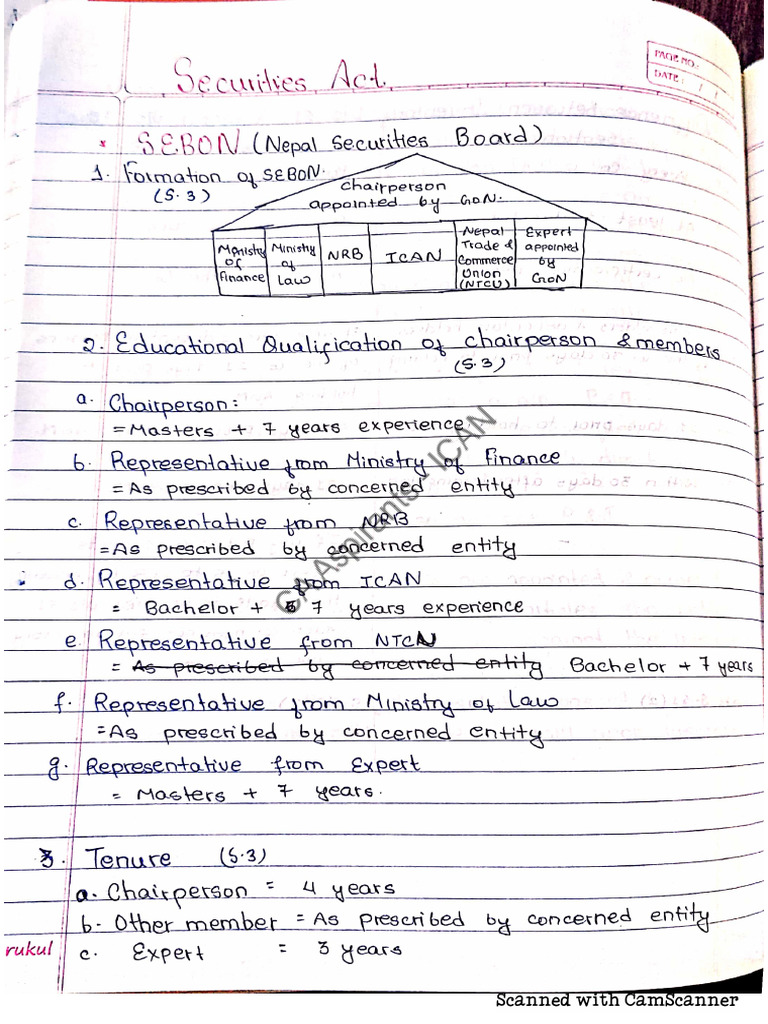 PAGE NO.:
DATE: / /
Securities Act.
* SEBON (Nepal Securities Board)
1. Formation of SEBON.
(S.3)
Chairperson
appointed by GoN.
Ministry of Finance
Ministry of Law
NRB
ICAN
Nepal Trade & Commerce Union (NTCU)
Expert appointed by GoN
2. Educational Qualification of chairperson & members
(S.3)
a. Chairperson:
= Masters + 7 years experience.
b. Representative from Ministry of Finance
= As prescribed by concerned entity
c. Representative from NRB
= As prescribed by concerned entity
d. Representative from ICAN
= Bachelor + 7 years experience
e. Representative from NTCU
= As prescribed by concerned entity Bachelor + 7 years
f. Representative from Ministry of Law
= As prescribed by concerned entity
g. Representative from Expert
= Masters + 7 years.
3. Tenure (S.3)
a. Chairperson = 4 years
b. Other member = As prescribed by concerned entity
rukul c. Expert = 3 years
CA Aspirants - ICAN
Scanned with CamScanner